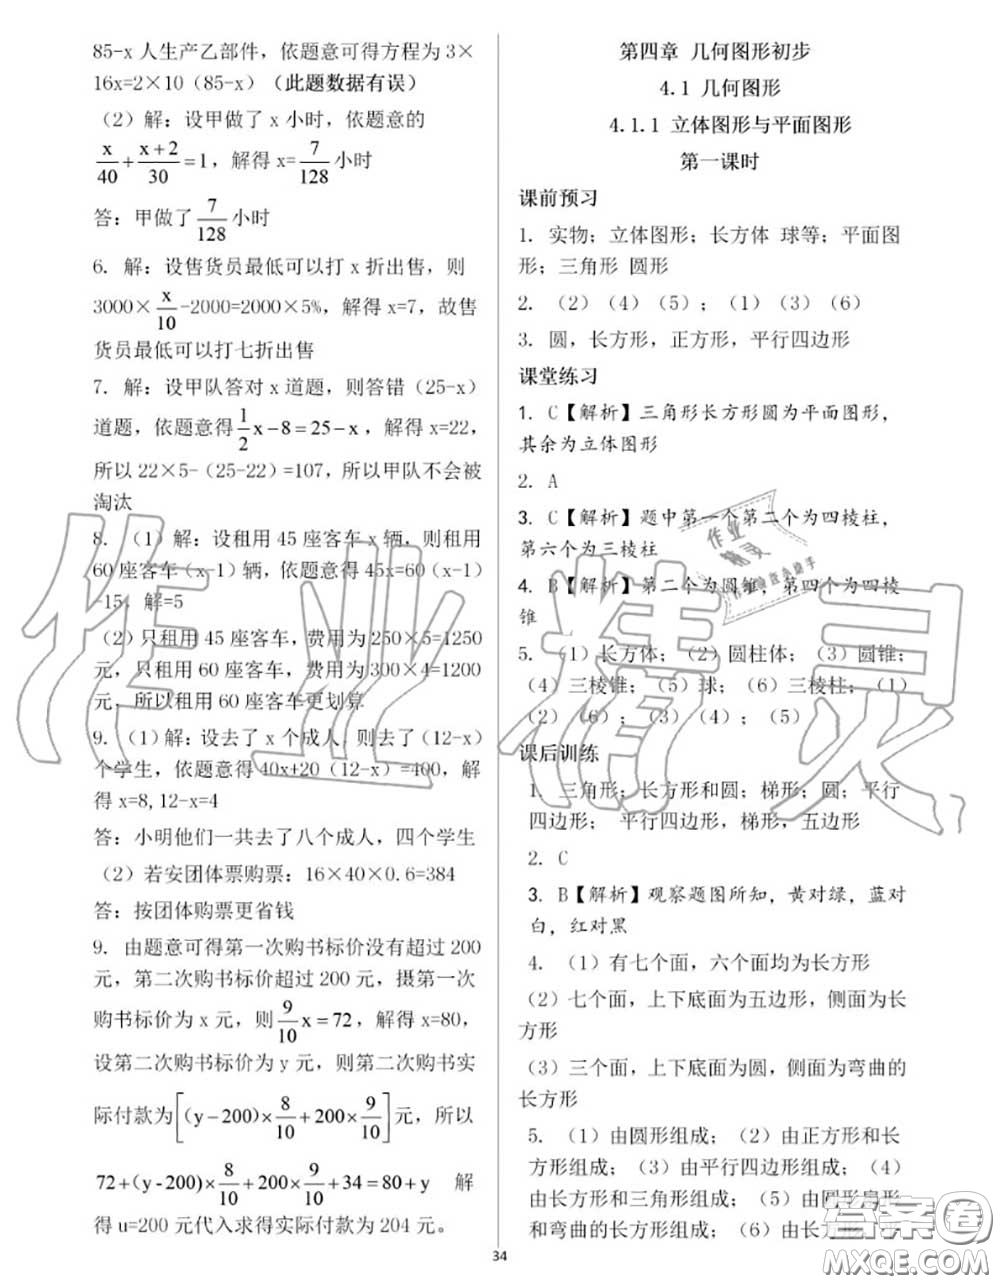 85-x 人生产乙部件，依题意可得方程为 3×
16x=2×10（85-x）（此题数据有误）
（2）解：设甲做了 x 小时，依题意的
x/40+(x+2)/30=1，解得 x=7/128小时
答：甲做了7/128小时
6. 解：设售货员最低可以打 x 折出售，则
3000×x/10-2000=2000×5%，解得 x=7，故售
货员最低可以打七折出售
7. 解：设甲队答对 x 道题，则答错（25-x）
道题，依题意得1/2x-8=25-x，解得 x=22，
所以 22×5-(25-22)=107，所以甲队不会被
淘汰
8. （1）解：设租用 45 座客车 x 辆，则租用
60 座客车（x-1）辆，依题意得 45x=60（x-1）
-15，解=5
（2）只租用 45 座客车，费用为 250×5=1250
元，只租用 60 座客车，费用为 300×4=1200
元，所以租用 60 座客车更划算
9. （1）解：设去了 x 个成人，则去了（12-x）
个学生，依题意得 40x+20（12-x）=400，解
得 x=8,12-x=4
答：小明他们一共去了八个成人，四个学生
（2）若安团体票购票：16×40×0.6=384
答：按团体购票更省钱
9. 由题意可得第一次购书标价没有超过 200
元，第二次购书标价超过 200 元，摄第一次
购书标价为 x 元，则9/10x=72，解得 x=80，
设第二次购书标价为 y 元，则第二次购书实
际付款为[(y-200)×8/10+200×9/10]元，所以
72+(y-200)×8/10+200×9/10+34=80+y 解
得 u=200 元代入求得实际付款为 204 元。
第四章 几何图形初步
4.1 几何图形
4.1.1 立体图形与平面图形
第一课时
课前预习
1. 实物；立体图形；长方体 球等；平面图
形；三角形 圆形
2. （2）（4）（5）；（1）（3）（6）
3. 圆，长方形，正方形，平行四边形
课堂练习
1. C【解析】三角形长方形圆为平面图形，
其余为立体图形
2. A
3. C【解析】题中第一个第二个为四棱柱，
第六个为三棱柱
4. B【解析】第二个为圆锥，第四个为四棱
锥
5. （1）长方体；（2）圆柱体；（3）圆锥；
（4）三棱锥；（5）球；（6）三棱柱；（1）
（2）（6）；（3）（4）；（5）
课后训练
1. 三角形；长方形和圆；梯形；圆；平行
四边形； 平行四边形，梯形，五边形
2. C
3. B【解析】观察题图所知，黄对绿，蓝对
白，红对黑
4. （1）有七个面，六个面均为长方形
（2）七个面，上下底面为五边形，侧面为长
方形
（3）三个面，上下底面为圆，侧面为弯曲的
长方形
5. （1）由圆形组成；（2）由正方形和长
方形组成；（3）由平行四边形组成；（4）
由长方形和三角形组成；（5）由圆形扇形
和弯曲的长方形组成；（6）由长方形
34
作业精灵
作业
精灵
答案圈
MXQE.COM